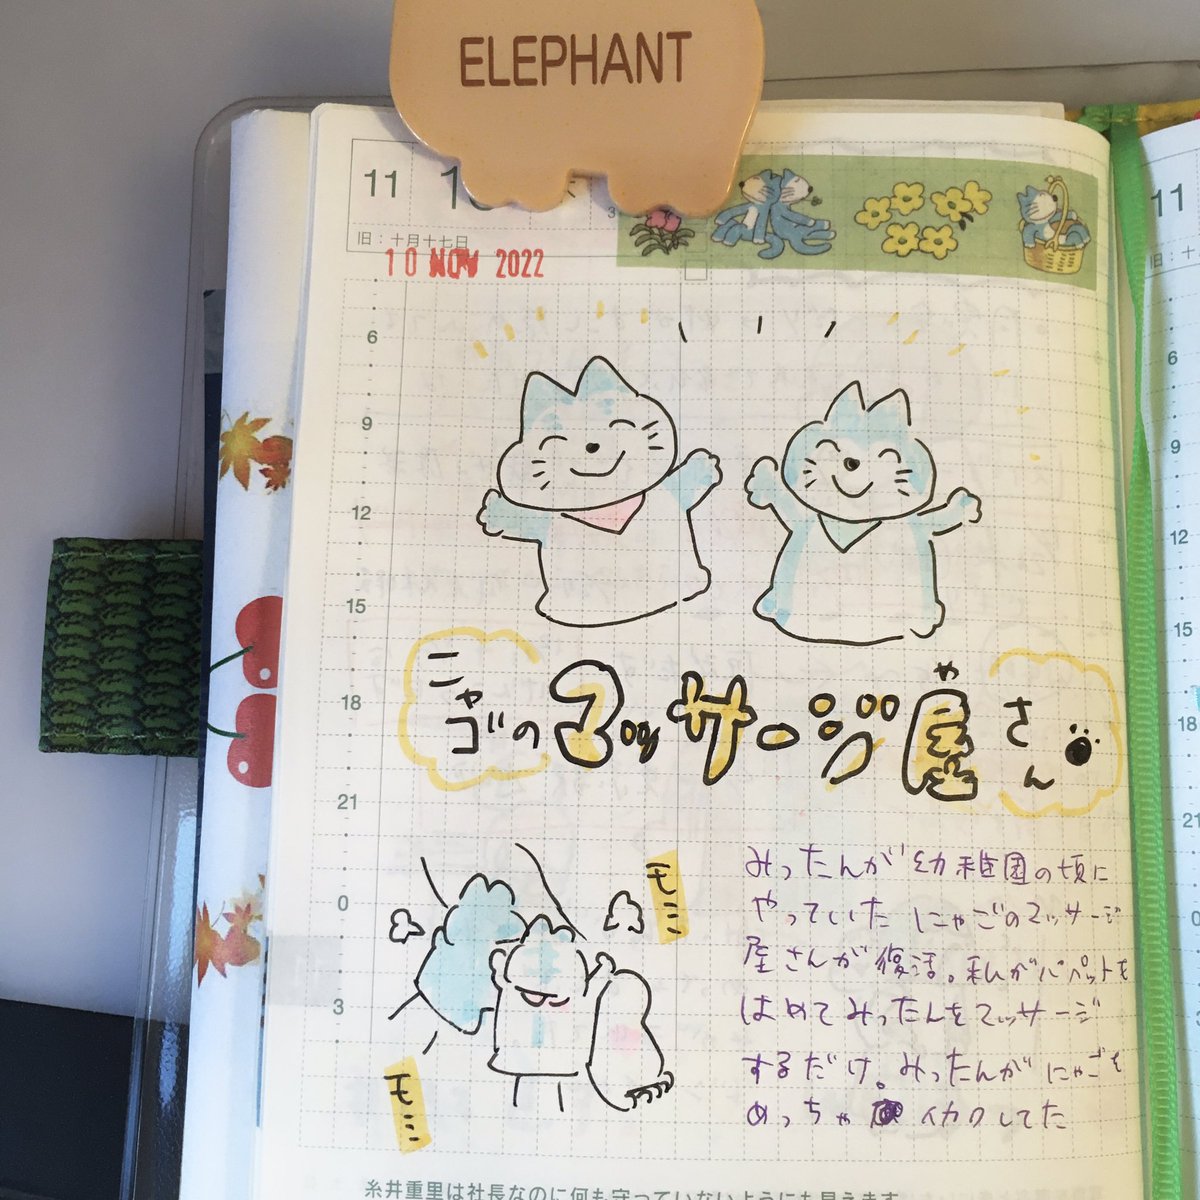 ELEPHANT
11
旧:十月十七日
10 NOV 2022
6
9
12
15
18
21
0
3
ニャゴのマッサージ屋さん
や
モミ
モミ
みったんが幼稚園の頃に
やっていた にゃごのマッサージ
屋さんが復活。私がパペットを
はめてみったんをマッサージ
するだけ。みったんがにゃごを
めっちゃ イカクしてた
糸井重里は社長なのに何も守っていないようにも見えます
11
旧:十
6
9
12
15
18
21